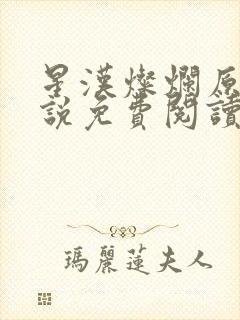 星漢燦爛原
說免費閱讀
瑪麗蓮夫人